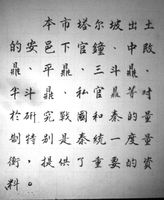 本市塔尔坡出土
的安邑下官鐘、中敃
鼎、平鼎、三斗鼎、
半斗鼎、私官鼎等对
於研究戰國和秦的量
制特别是秦統一度量
衡，提供了重要的資
料。